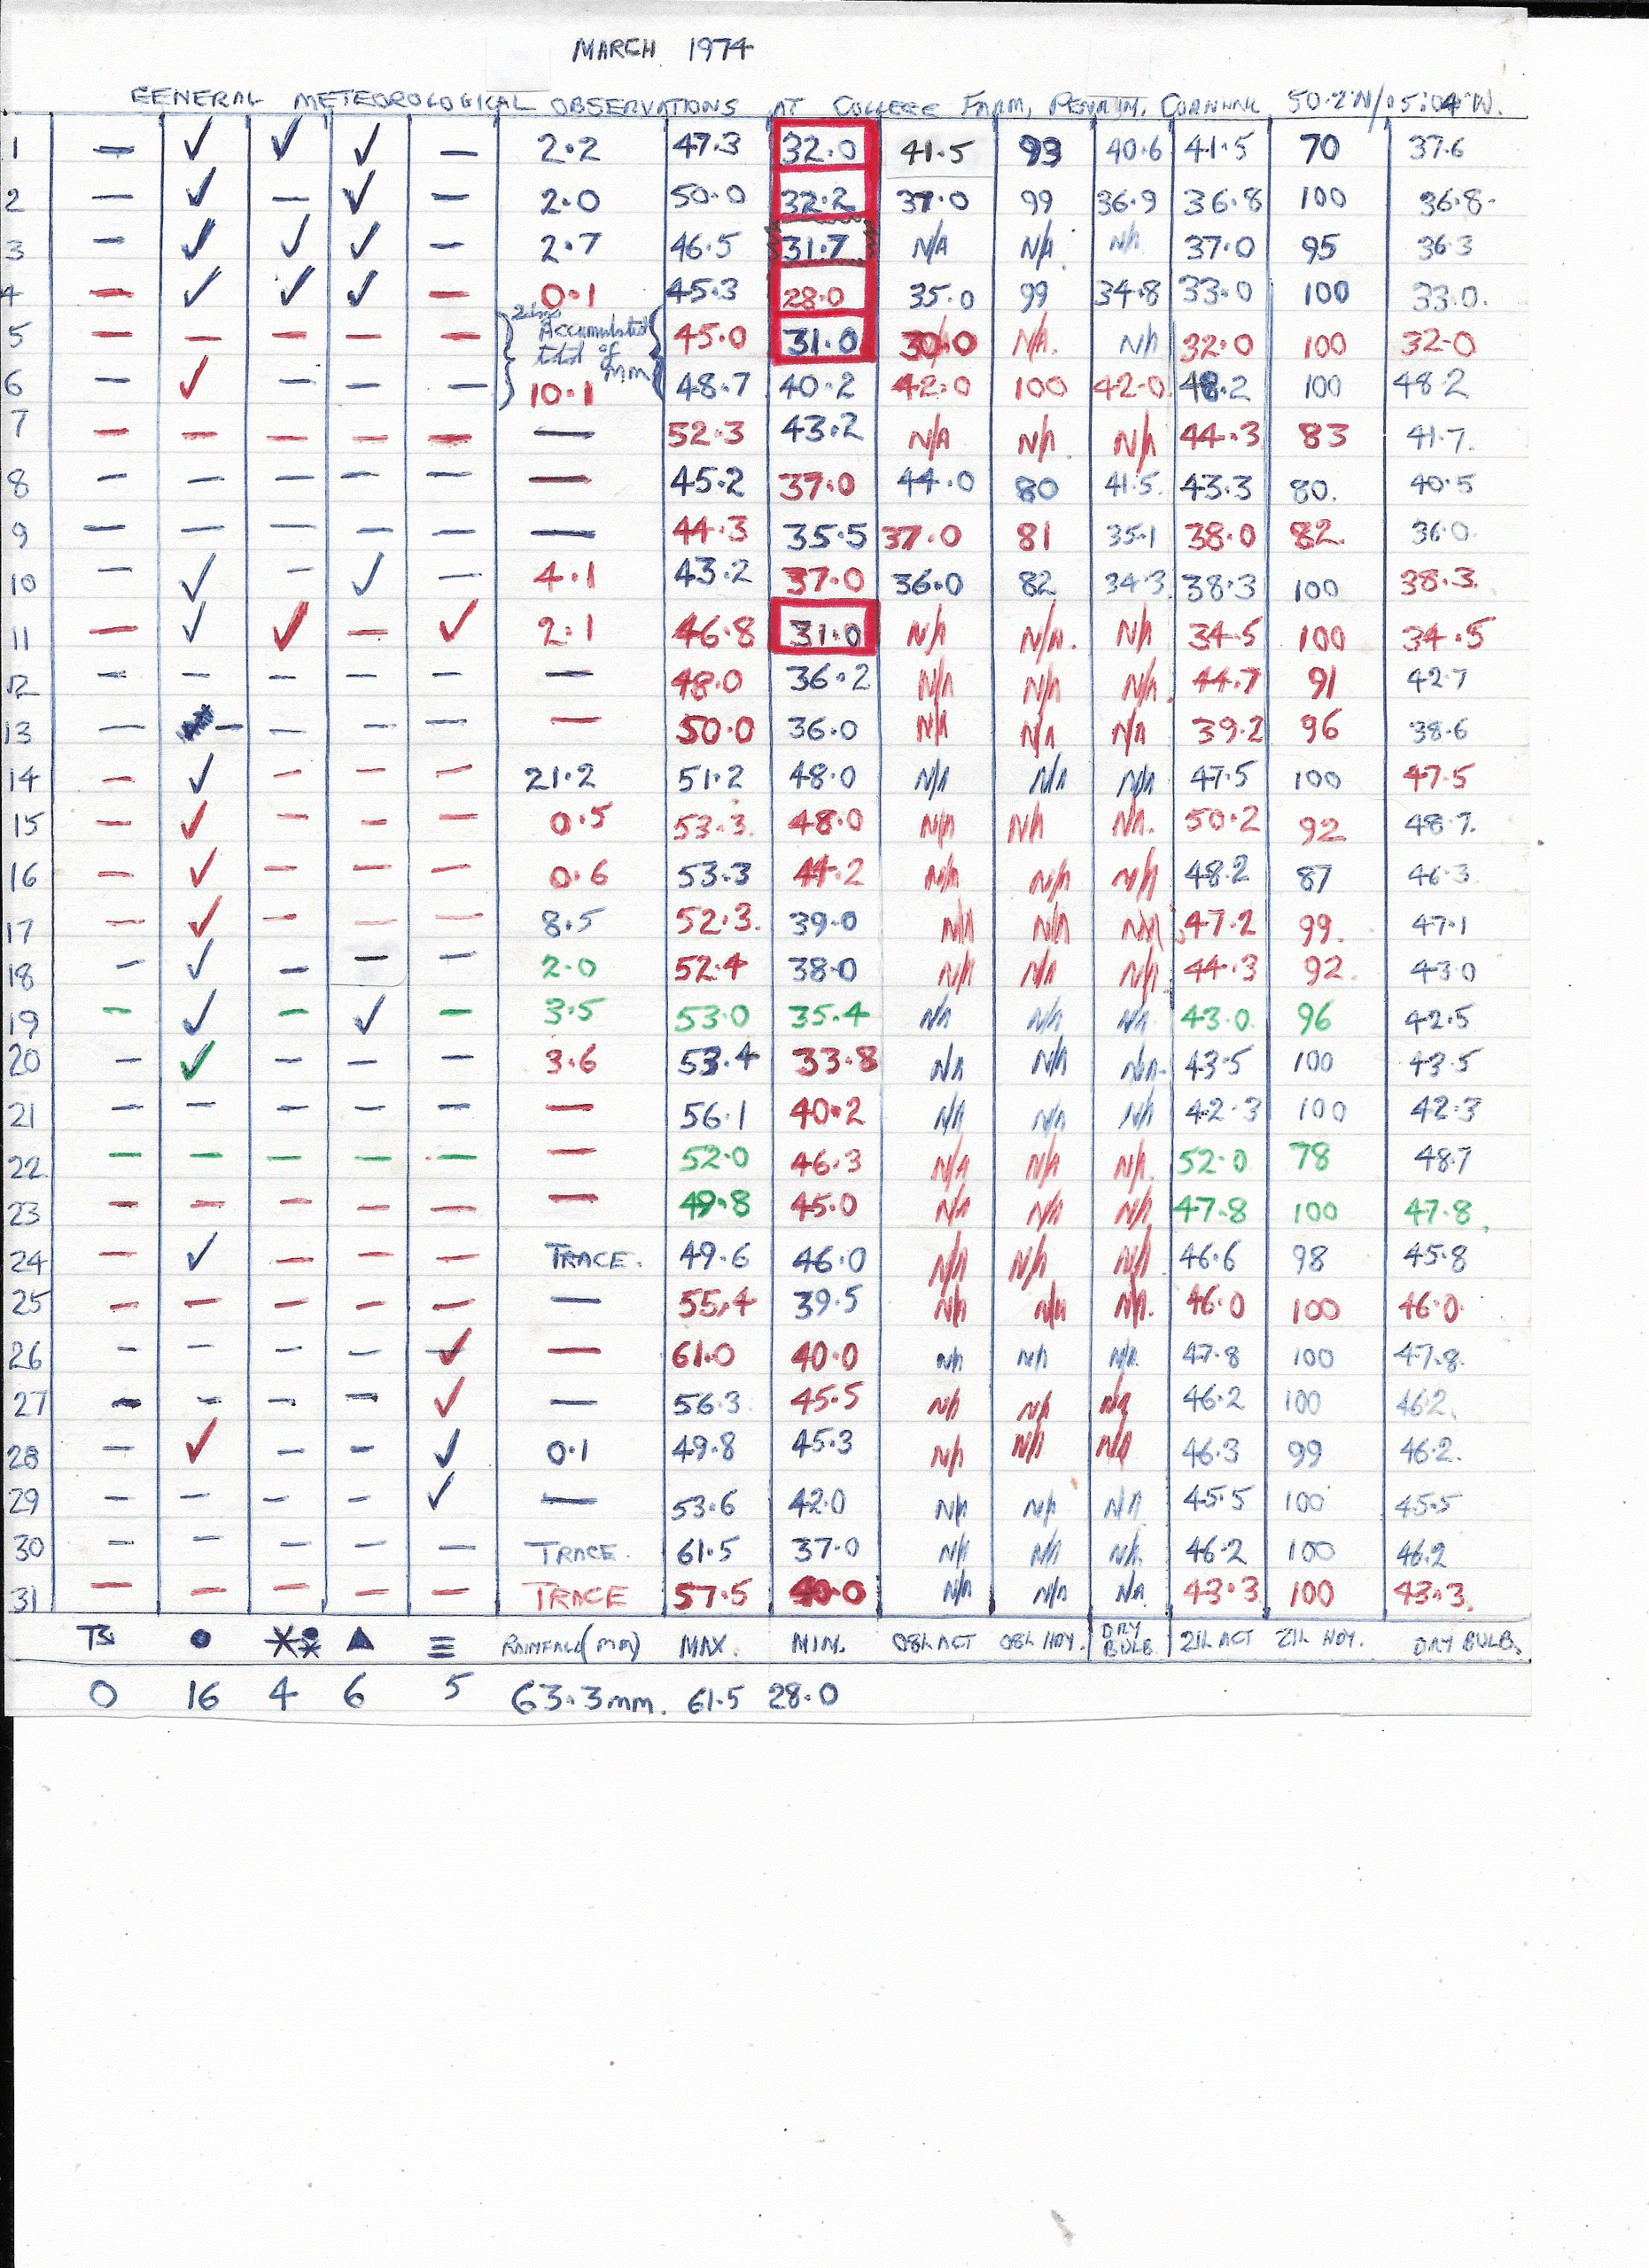 MARCH 1974
GENERAL METEOROLOGICAL OBSERVATIONS AT COLLEGE FARM, PENRYN, CORNWALL 50.2'N/05:04'W.
1 — ✓ ✓ ✓ — 2.2 47.3 32.0 41.5 93 40.6 41.5 70 37.6
2 — ✓ — ✓ — 2.0 50.0 32.2 37.0 99 36.9 36.8 100 36.8
3 — ✓ ✓ ✓ — 2.7 46.5 31.7 N/A N/A N/A 37.0 95 36.3
4 — ✓ ✓ ✓ — 0.1 45.3 28.0 35.0 99 34.8 33.0 100 33.0.
5 — — — — — Accumulated total of 45.0 31.0 30.0 N/A. N/A 32.0 100 32.0
6 — ✓ — — — 10.1 mm 48.7 40.2 42.0 100 42.0 48.2 100 48.2
7 — — — — — — 52.3 43.2 N/A N/A N/A 44.3 83 41.7.
8 — — — — — — 45.2 37.0 44.0 80 41.5. 43.3 80. 40.5
9 — — — — — — 44.3 35.5 37.0 81 35.1 38.0 82. 36.0.
10 — ✓ — ✓ — 4.1 43.2 37.0 36.0 82 34.3 38.3 100 38.3.
11 — ✓ ✓ — ✓ 2.1 46.8 31.0 N/A N/A. N/A 34.5 100 34.5
12 — — — — — — 48.0 36.2 N/A N/A N/A. 44.7 91 42.7
13 — — — — — — 50.0 36.0 N/A N/A N/A 39.2 96 38.6
14 — ✓ — — — 21.2 51.2 48.0 N/A N/A N/A 47.5 100 47.5
15 — ✓ — — — 0.5 53.3. 48.0 N/A N/A N/A. 50.2 92 48.7.
16 — ✓ — — — 0.6 53.3 44.2 N/A N/A N/A 48.2 87 46.3
17 — ✓ — — — 8.5 52.3. 39.0 N/A N/A N/A 47.2 99. 47.1
18 — ✓ — — — 2.0 52.4 38.0 N/A N/A N/A 44.3 92. 43.0
19 — ✓ — ✓ — 3.5 53.0 35.4 N/A N/A N/A 43.0 96 42.5
20 — ✓ — — — 3.6 53.4 33.8 N/A N/A N/A. 43.5 100 43.5
21 — — — — — — 56.1 40.2 N/A N/A N/A 42.3 100 42.3
22 — — — — — — 52.0 46.3 N/A N/A N/A. 52.0 78 48.7
23 — — — — — — 49.8 45.0 N/A N/A N/A 47.8 100 47.8
24 — ✓ — — — TRACE. 49.6 46.0 N/A N/A N/A 46.6 98 45.8
25 — — — — — — 55.4 39.5 N/A N/A N/A. 46.0 100 46.0
26 — — — — ✓ — 61.0 40.0 N/A N/A N/A 47.8 100 47.8.
27 — — — — ✓ — 56.3 45.5 N/A N/A N/A 46.2 100 46.2.
28 — ✓ — — ✓ 0.1 49.8 45.3 N/A N/A N/A 46.3 99 46.2.
29 — — — — ✓ — 53.6 42.0 N/A N/A N/A 45.5 100 45.5
30 — — — — — TRACE. 61.5 37.0 N/A N/A N/A. 46.2 100 46.2
31 — — — — — TRACE 57.5 40.0 N/A N/A N/A 43.3 100 43.3.
TS ● ▲ ≡ RAINFALL (mm) MAX. MIN. 08h ACT 08h HDY. DRY BULB 21h ACT 21h HDY. DRY BULB.
0 16 4 6 5 63.3mm. 61.5 28.0